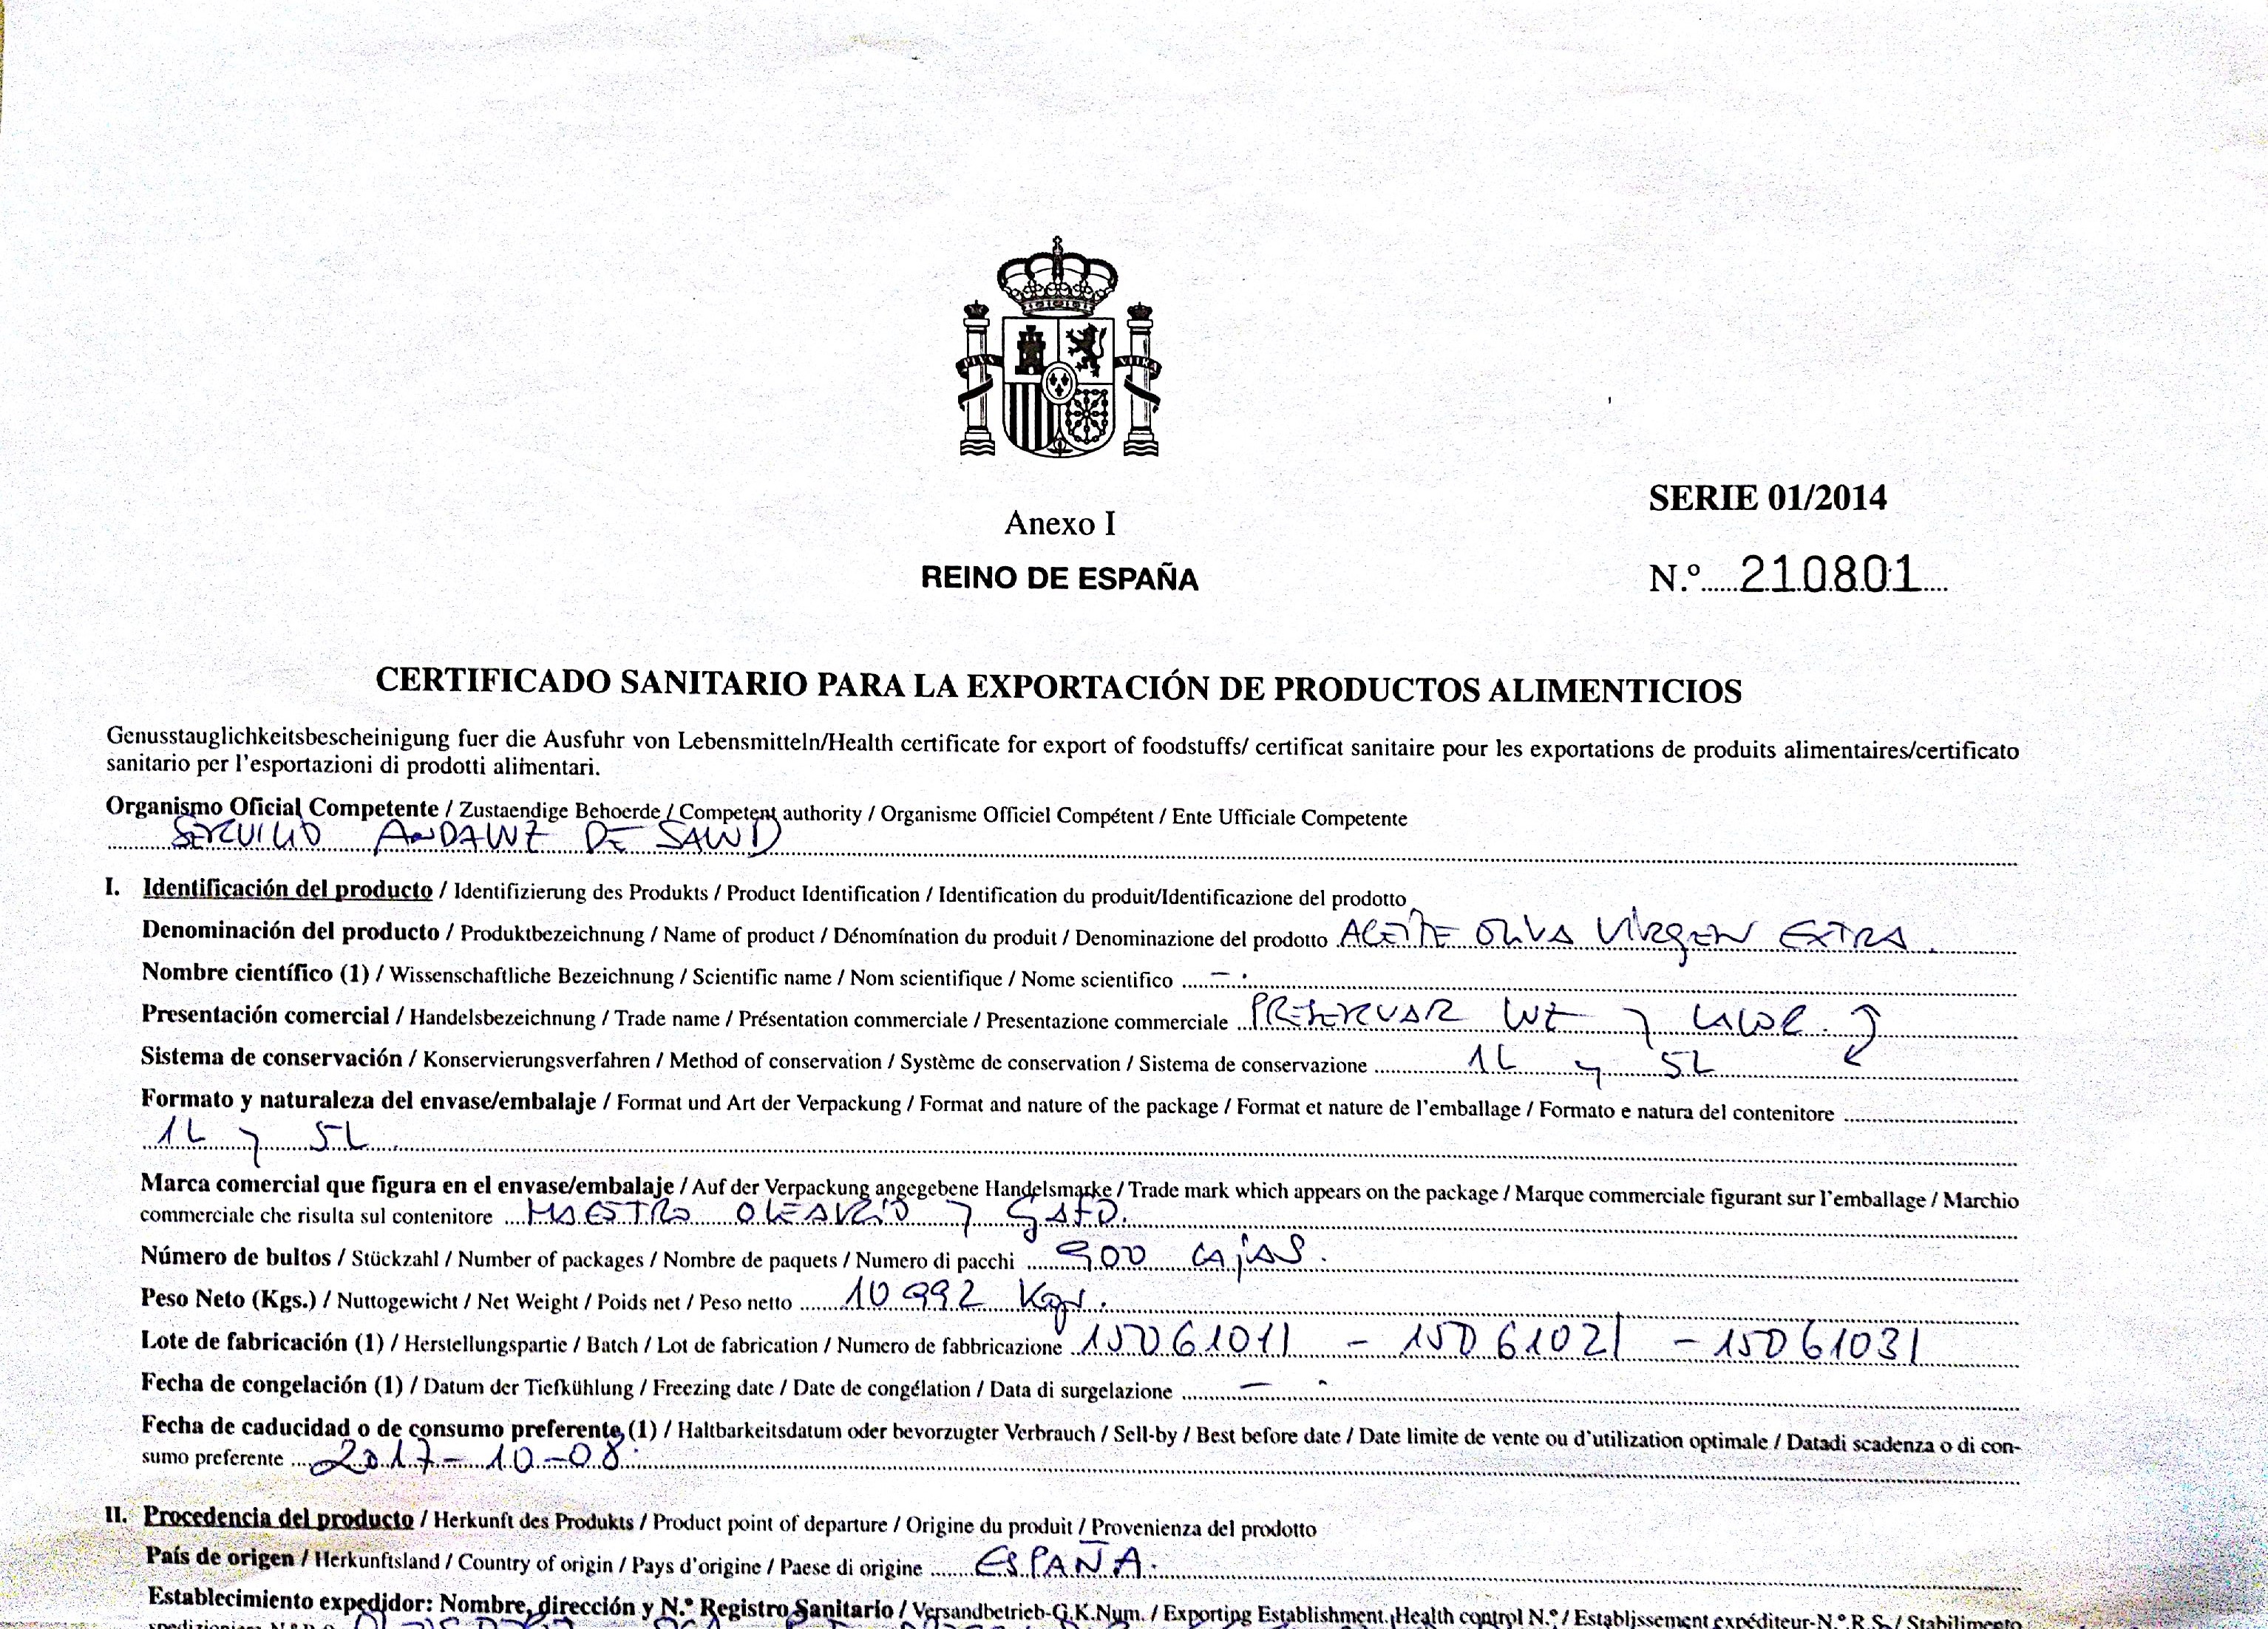 PLVS VLTRA
SERIE 01/2014
Anexo I
N.º 210801
REINO DE ESPAÑA
CERTIFICADO SANITARIO PARA LA EXPORTACIÓN DE PRODUCTOS ALIMENTICIOS
Genusstauglichkeitsbescheinigung fuer die Ausfuhr von Lebensmitteln/Health certificate for export of foodstuffs/ certificat sanitaire pour les exportations de produits alimentaires/certificato
sanitario per l'esportazioni di prodotti alimentari.
Organismo Oficial Competente / Zustaendige Behoerde / Competent authority / Organisme Officiel Compétent / Ente Ufficiale Competente
SERVICIO ANDALUZ DE SALUD
I. Identificación del producto / Identifizierung des Produkts / Product Identification / Identification du produit/Identificazione del prodotto
Denominación del producto / Produktbezeichnung / Name of product / Dénomínation du produit / Denominazione del prodotto ACEITE OLIVA VIRGEN EXTRA.
Nombre científico (1) / Wissenschaftliche Bezeichnung / Scientific name / Nom scientifique / Nome scientifico -.
Presentación comercial / Handelsbezeichnung / Trade name / Présentation commerciale / Presentazione commerciale PRESERVAR LUZ y CALOR.
Sistema de conservación / Konservierungsverfahren / Method of conservation / Système de conservation / Sistema de conservazione 1L y 5L
Formato y naturaleza del envase/embalaje / Format und Art der Verpackung / Format and nature of the package / Format et nature de l'emballage / Formato e natura del contenitore
1L y 5L
Marca comercial que figura en el envase/embalaje / Auf der Verpackung angegebene Handelsmarke / Trade mark which appears on the package / Marque commerciale figurant sur l'emballage / Marchio
commerciale che risulta sul contenitore MAESTRO OLEARIO y
Número de bultos / Stückzahl / Number of packages / Nombre de paquets / Numero di pacchi 900 cajas.
Peso Neto (Kgs.) / Nuttogewicht / Net Weight / Poids net / Peso netto 10992 Kgr.
Lote de fabricación (1) / Herstellungspartie / Batch / Lot de fabrication / Numero de fabbricazione 15061011 - 15061021 - 15061031
Fecha de congelación (1) / Datum der Tiefkühlung / Freezing date / Date de congélation / Data di surgelazione - .
Fecha de caducidad o de consumo preferente (1) / Haltbarkeitsdatum oder bevorzugter Verbrauch / Sell-by / Best before date / Date limite de vente ou d'utilization optimale / Datadi scadenza o di con-
sumo preferente 2017-10-08.
II. Procedencia del producto / Herkunft des Produkts / Product point of departure / Origine du produit / Provenienza del prodotto
País de origen / Herkunftsland / Country of origin / Pays d'origine / Paese di origine ESPAÑA.
Establecimiento expedidor: Nombre, dirección y N.º Registro Sanitario / Versandbetrieb-G.K.Num. / Exporting Establishment. Health control N.º / Establissement expéditeur-N.º R.S. / Stabilimento